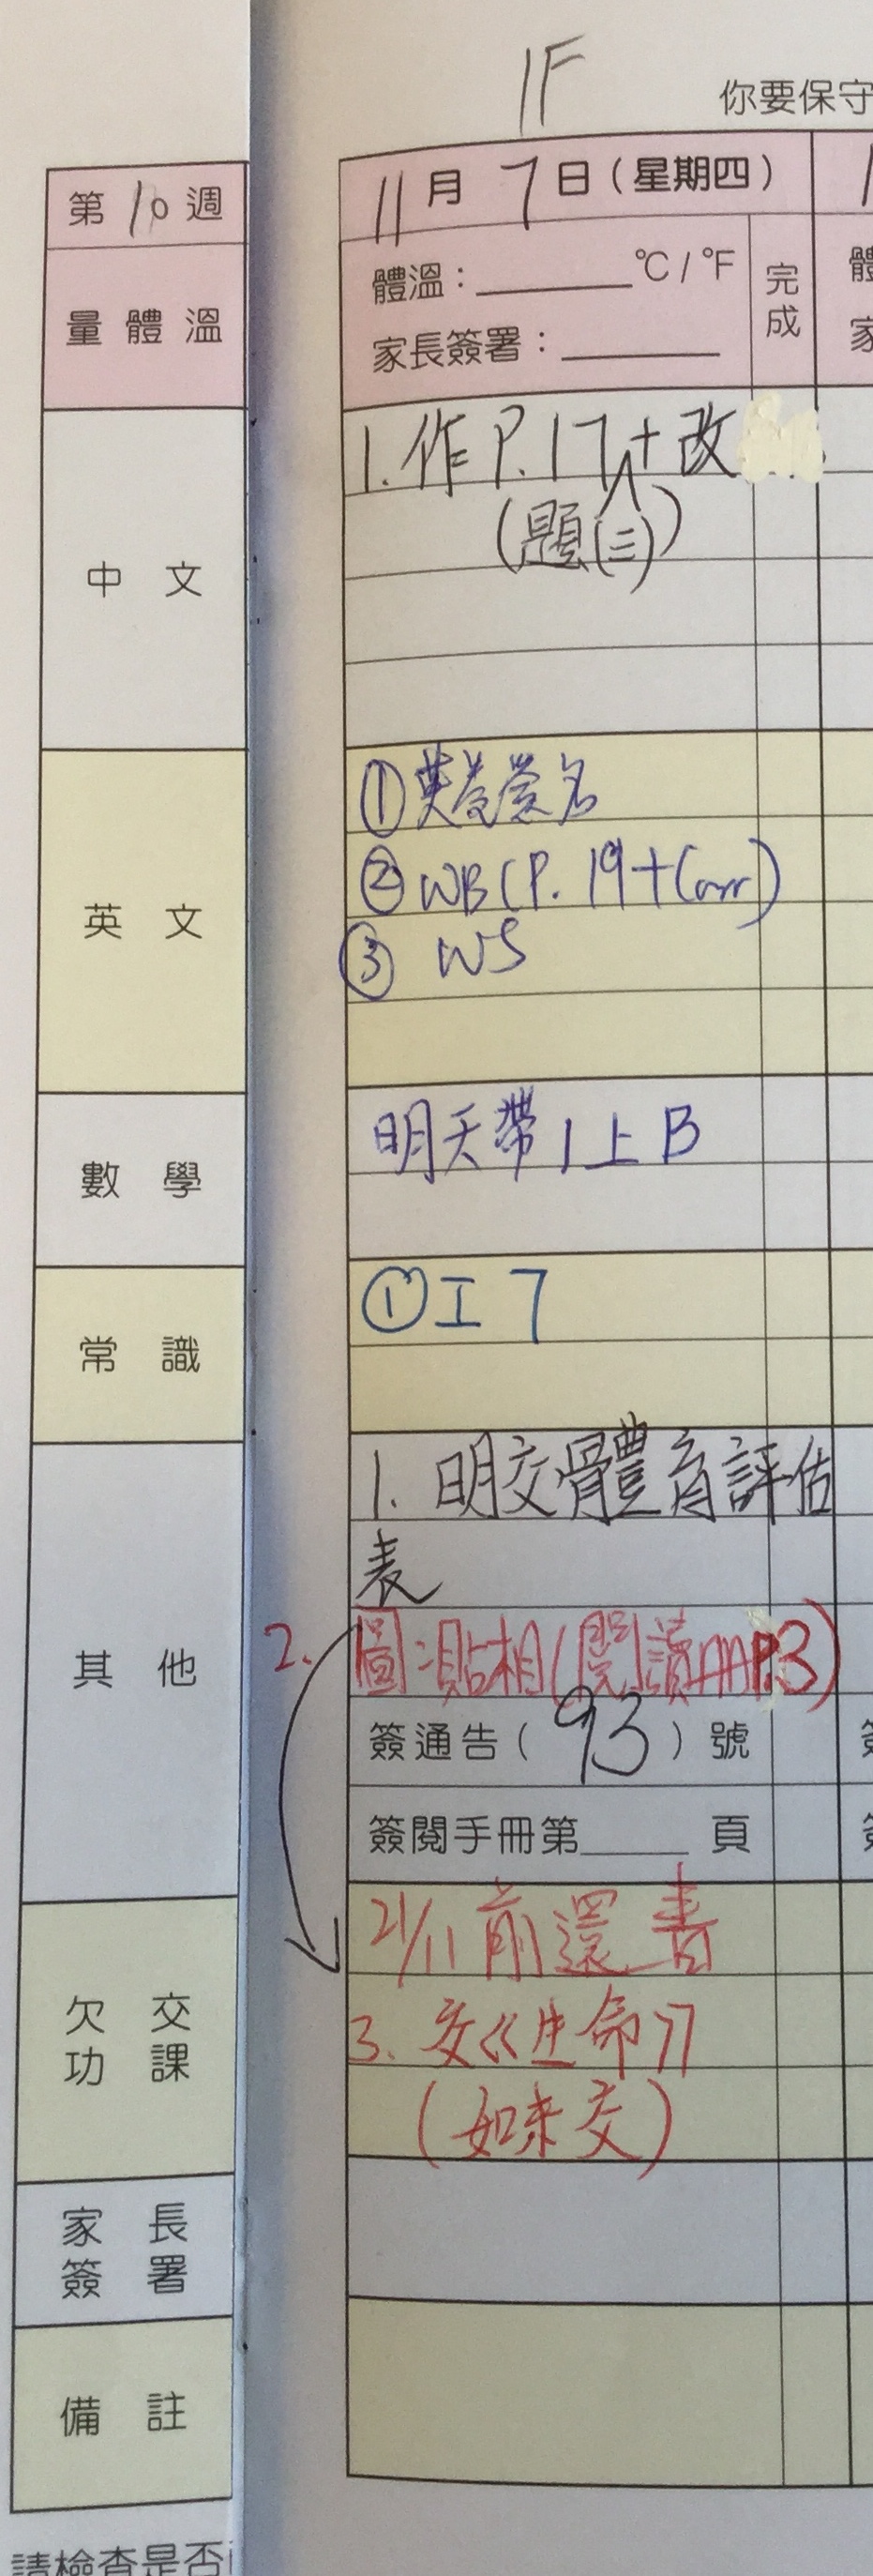 1F
你要保守
第10週
11月7日(星期四)
量體溫
體溫：______°C/°F
完成
家長簽署：______
中文
1.作P.17+改
(題(三))
英文
①英卷簽名
②WB(P.19+Corr)
③ WS
數學
明天帶1上B
常識
①工7
其他
1. 明交體育評估
表
2. 圖:貼相(閱讀P.3)
簽通告(93)號
簽閱手冊第____頁
欠交功課
21/11前還書
3. 交《生命》
(如未交)
家長簽署
備註
請檢查是否